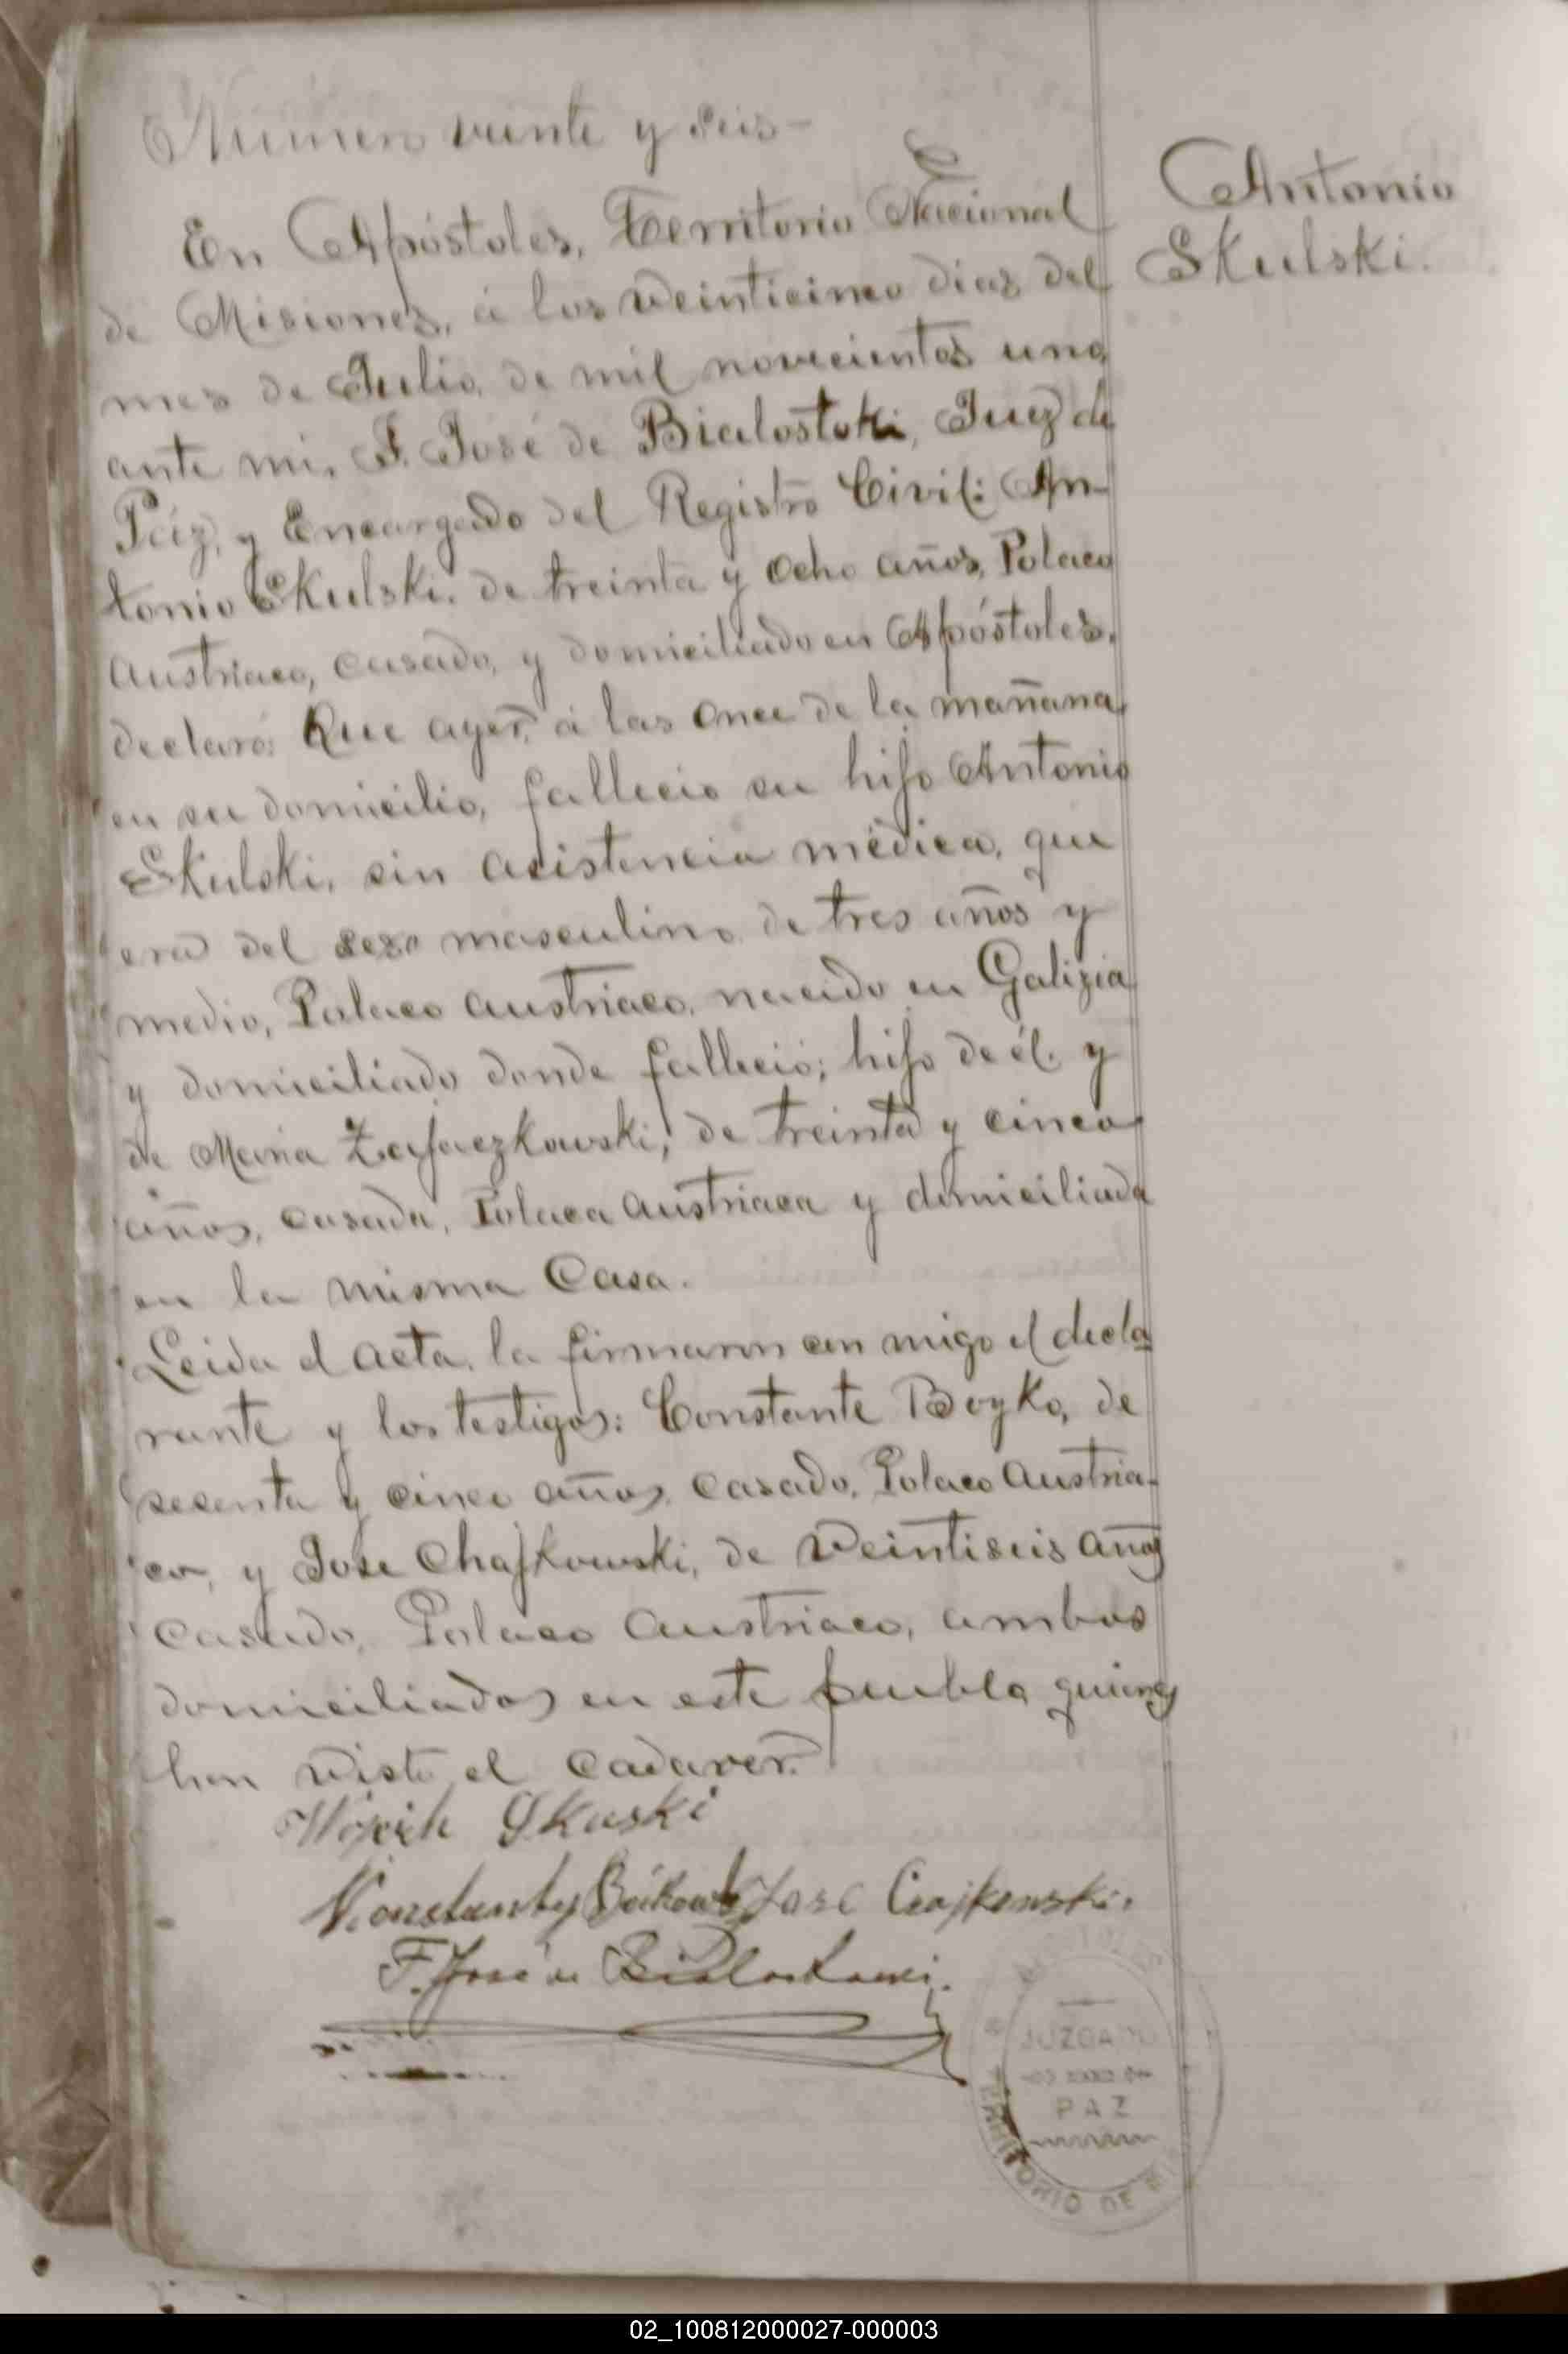 Número veinte y seis-
Antonio
Skulski.
En Apóstoles, Territorio Nacional
de Misiones, á los veinticinco dias del
mes de Julio, de mil novecientos uno,
ante mi, F. José de Bialostoki, Juez de
Páz, y Encargado del Registro Civil: An-
tonio Skulski, de treinta y ocho años, Polaco
Austriaco, casado, y domiciliado en Apóstoles,
declaró: Que ayer, á las once de la mañana,
en su domicilio, falleció su hijo Antonio
Skulski, sin asistencia médica, que
era del sexo masculino, de tres años y
medio, Polaco austriaco, nacido en Galizia
y domiciliado donde falleció; hijo de él y
de Maria Zajaczkowski, de treinta y cinco
años, casada, Polaca austriaca y domiciliada
en la misma Casa.
Leida el acta, la firmaron con migo el decla
rante y los testigos: Constante Boyko, de
sesenta y cinco años, casado, Polaco Austria-
co, y José Chajkowski, de veintiseis años
casado, Polaco Austriaco, ambos
domiciliados en este pueblo, quienes
han visto el cadaver.
Skuski
José Czajkowski.
F. José de
JUZGADO
PAZ
TERRITORIO DE
02_100812000027-000003